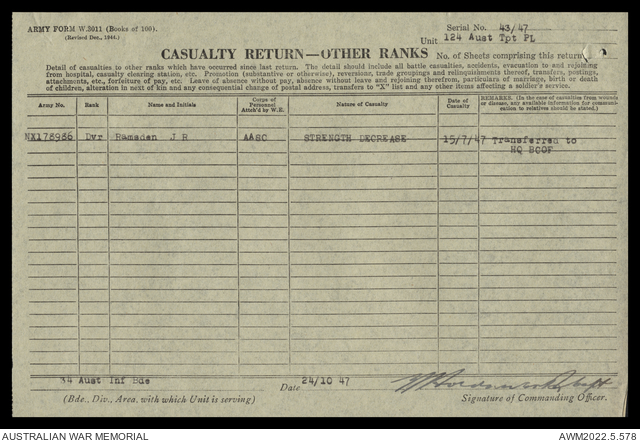 ARMY FORM W.3011 (Books of 100).
(Revised Dec., 1944.)
Serial No. 43/47
Unit 124 Aust Tpt PL
CASUALTY RETURN—OTHER RANKS
No. of Sheets comprising this return
Detail of casualties to other ranks which have occurred since last return. The detail should include all battle casualties, accidents, evacuation to and rejoining
from hospital, casualty clearing station, etc. Promotion (substantive or otherwise), reversions, trade groupings and relinquishments thereof, transfers, postings,
attachments, etc., forfeiture of pay, etc. Leave of absence without pay, absence without leave and rejoining therefrom, particulars of marriage, birth or death
of children, alteration in next of kin and any consequential change of postal address, transfers to "X" list and any other items affecting a soldier's service.
Army No. Rank Name and Initials Corps of Personnel Attch'd by W.E. Nature of Casualty Date of Casualty REMARKS. (In the case of casualties from wounds or disease, any available information for communication to relatives should be stated.)
NX178986 Dvr Ramsden J R AASC STRENGTH DECREASE 15/7/47 Transferred to
HQ BCOF
34 Aust Inf Bde
Date 24/10 47
(Bde., Div., Area, with which Unit is serving)
Signature of Commanding Officer.
AUSTRALIAN WAR MEMORIAL
AWM2022.5.578